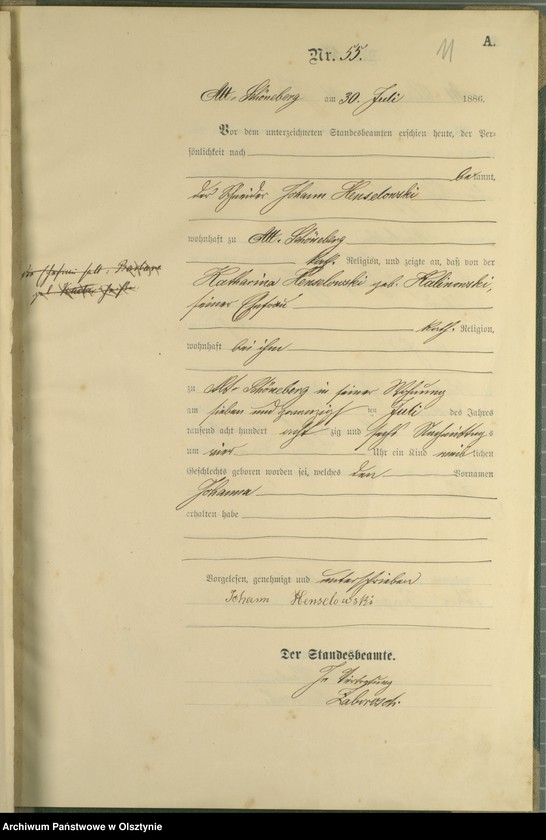 A.
11
Nr. 55.
Alt-Schöneberg am 30. Juli 1886.
Vor dem unterzeichneten Standesbeamten erschien heute, der Per-
sönlichkeit nach
bekannt,
der Schneider Johann Henselowski
wohnhaft zu Alt-Schöneberg
kath. Religion, und zeigte an, daß von der
Katharina Henselowski geb. Kalinowski,
seiner Ehefrau
kath. Religion,
wohnhaft bei ihm
zu Alt-Schöneberg in seiner Wohnung
am sieben und zwanzigsten ten Juli des Jahres
tausend acht hundert acht zig und sechs Nachmittags
um vier Uhr ein Kind weiblichen
Geschlechts geboren worden sei, welches den Vornamen
Johanna
erhalten habe
Vorgelesen, genehmigt und unterschrieben
Johann Henselowski
Der Standesbeamte.
In Vertretung
Archiwum Państwowe w Olsztynie